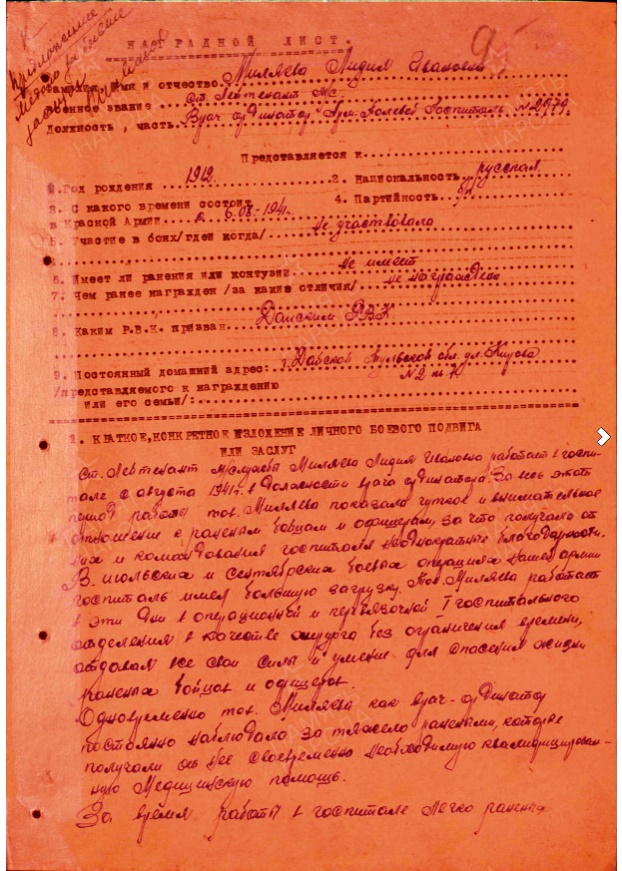 9
НАГРАДНОЙ ЛИСТ.
медаль
Фамилия, имя и отчество Миляева Лидия Ивановна
Военное звание Ст. Лейтенант м/с
Должность, часть Врач ординатор Полевой Госпиталь № 2979.
Представляется к
1. Год рождения 1912. 2. Национальность русская.
3. С какого времени состоит 4. Партийность б/п
в Красной Армии с 6.08-1941г.
5. Участие в боях/где и когда/ не участвовала
6. Имеет ли ранения или контузии не имеет
7. Чем ранее награжден /за какие отличия/ не награждена
8. Каким Р.В.К. призван Данским РВК
9. Постоянный домашний адрес: г. Тульской обл. ул.
/представляемого к награждению № 2
или его семьи/:
1. КРАТКОЕ, КОНКРЕТНОЕ ИЗЛОЖЕНИЕ ЛИЧНОГО БОЕВОГО ПОДВИГА
ИЛИ ЗАСЛУГ
Ст. Лейтенант м/службы Миляева Лидия Ивановна работает в госпи-
тале с августа 1941г. в должности врача ординатора. За весь этот
период работы тов. Миляева показала чуткое и внимательное
отношение к раненым бойцам и офицерам, за что получала от
них и командования госпиталя неоднократные благодарности.
В июльских и сентябрьских боевых операциях нашей армии
госпиталь имел большую загрузку. Тов. Миляева работает
в эти дни в операционной и перевязочной I госпитального
отделения в качестве хирурга без ограничения времени,
отдавая все свои силы и умение для спасения жизни
раненых бойцов и офицеров.
Одновременно тов. Миляева как врач-ординатор
постоянно наблюдала за тяжело ранеными, которые
получали от нее своевременно необходимую квалифицирован-
ную медицинскую помощь.
За время работы в госпитале легко раненых